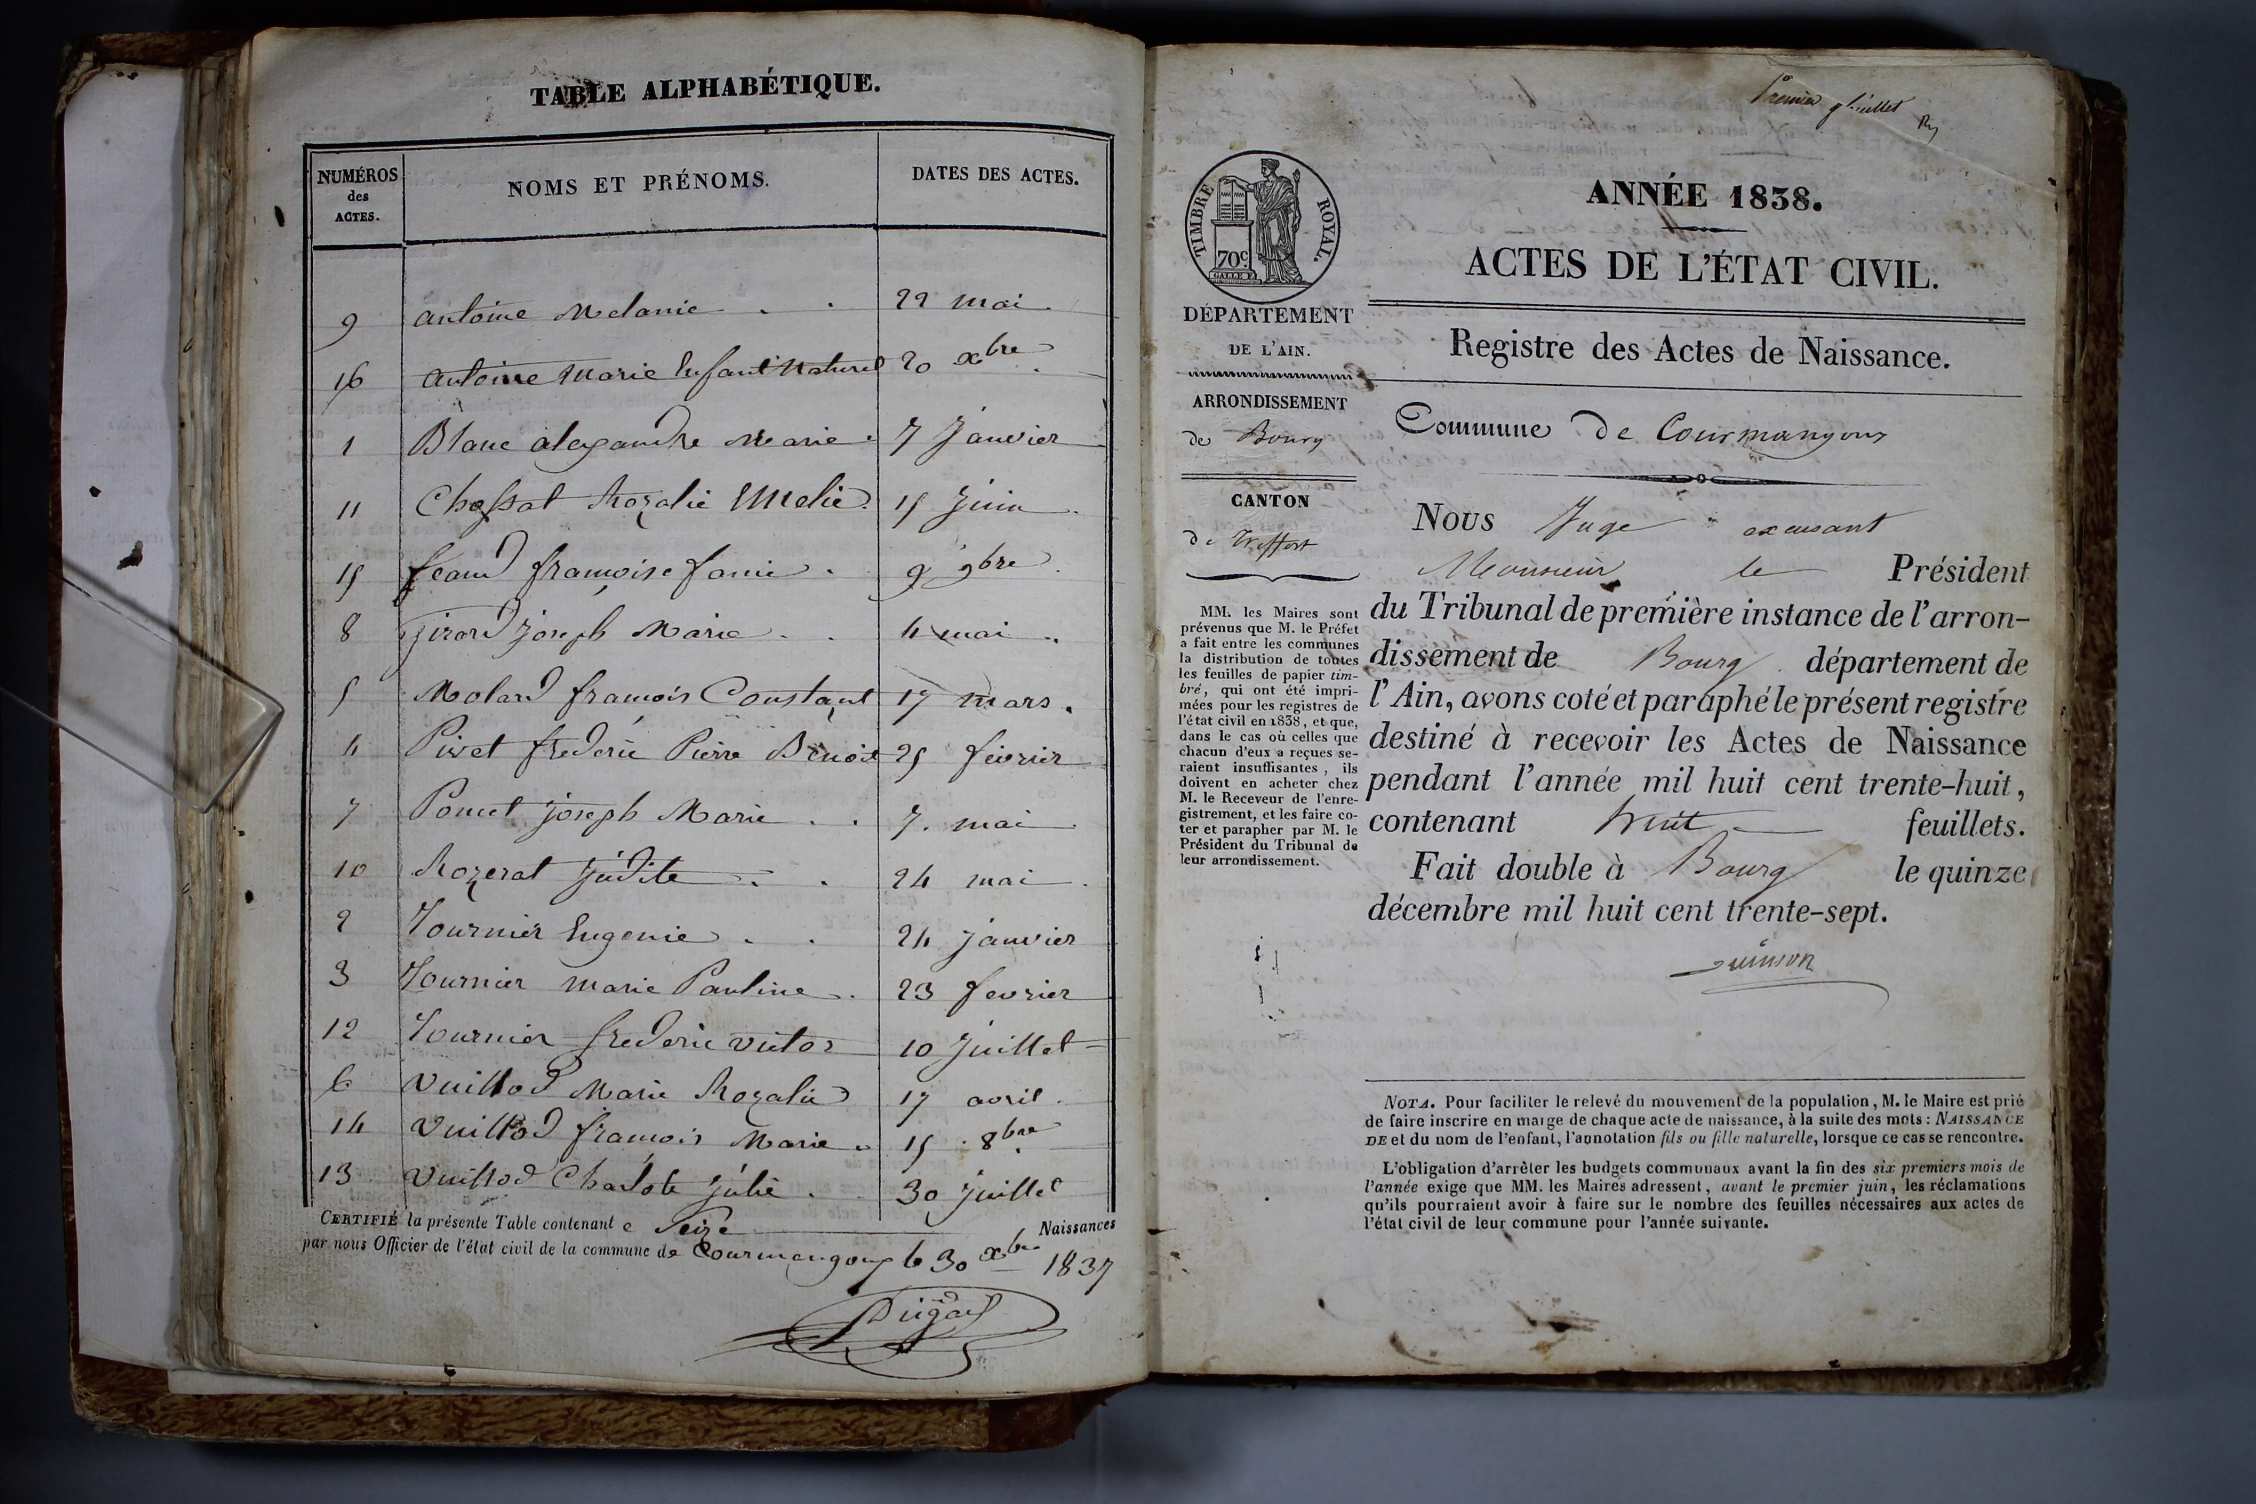 TABLE ALPHABÉTIQUE.
NUMÉROS des ACTES. NOMS ET PRÉNOMS. DATES DES ACTES.
9 antoine Melanie 22 mai
16 antoine Marie Enfant Naturel 20 xbre
1 Blanc alexandre Marie 7 Janvier
11 Chossat Rozalie Emelie 15 Juin
15 feand françoise fanie 9 9bre
8 Girard joseph Marie 4 mai
5 Molard françois Constant 17 mars
4 Pivet frederic Pierre Benoit 25 fevrier
7 Poncet joseph Marie 7 mai
10 Rozerat judite 24 mai
2 Tournier Eugenie 24 janvier
3 Tournier marie Pauline 23 fevrier
12 Tournier frederic victor 10 Juillet
6 Vuillod Marie Rozalie 17 avril
14 Vuillod françois Marie 15 8bre
13 Vuillod Charlote julie 30 Juillet
CERTIFIÉ la présente Table contenant Seize Naissances
par nous Officier de l'état civil de la commune de Courmangoux le 30 xbre 1837
Premier feuillet
TIMBRE ROYAL.
70c
ANNÉE 1838.
ACTES DE L'ÉTAT CIVIL.
DÉPARTEMENT
DE L'AIN.
Registre des Actes de Naissance.
ARRONDISSEMENT
de Bourg
Commune de Courmangoux
CANTON
de Treffort
Nous Juge excusant
Monsieur le Président
du Tribunal de première instance de l'arron-
dissement de Bourg département de
l'Ain, avons coté et paraphé le présent registre
destiné à recevoir les Actes de Naissance
pendant l'année mil huit cent trente-huit,
contenant huit feuillets.
Fait double à Bourg le quinze
décembre mil huit cent trente-sept.
MM. les Maires sont
prévenus que M. le Préfet
a fait entre les communes
la distribution de toutes
les feuilles de papier tim-
bré, qui ont été impri-
mées pour les registres de
l'état civil en 1838, et que,
dans le cas où celles que
chacun d'eux a reçues se-
raient insuffisantes, ils
doivent en acheter chez
M. le Receveur de l'enre-
gistrement, et les faire co-
ter et parapher par M. le
Président du Tribunal de
leur arrondissement.
NOTA. Pour faciliter le relevé du mouvement de la population, M. le Maire est prié
de faire inscrire en marge de chaque acte de naissance, à la suite des mots : NAISSANCE
DE et du nom de l'enfant, l'annotation fils ou fille naturelle, lorsque ce cas se rencontre.
L'obligation d'arrêter les budgets communaux avant la fin des six premiers mois de
l'année exige que MM. les Maires adressent, avant le premier juin, les réclamations
qu'ils pourraient avoir à faire sur le nombre des feuilles nécessaires aux actes de
l'état civil de leur commune pour l'année suivante.